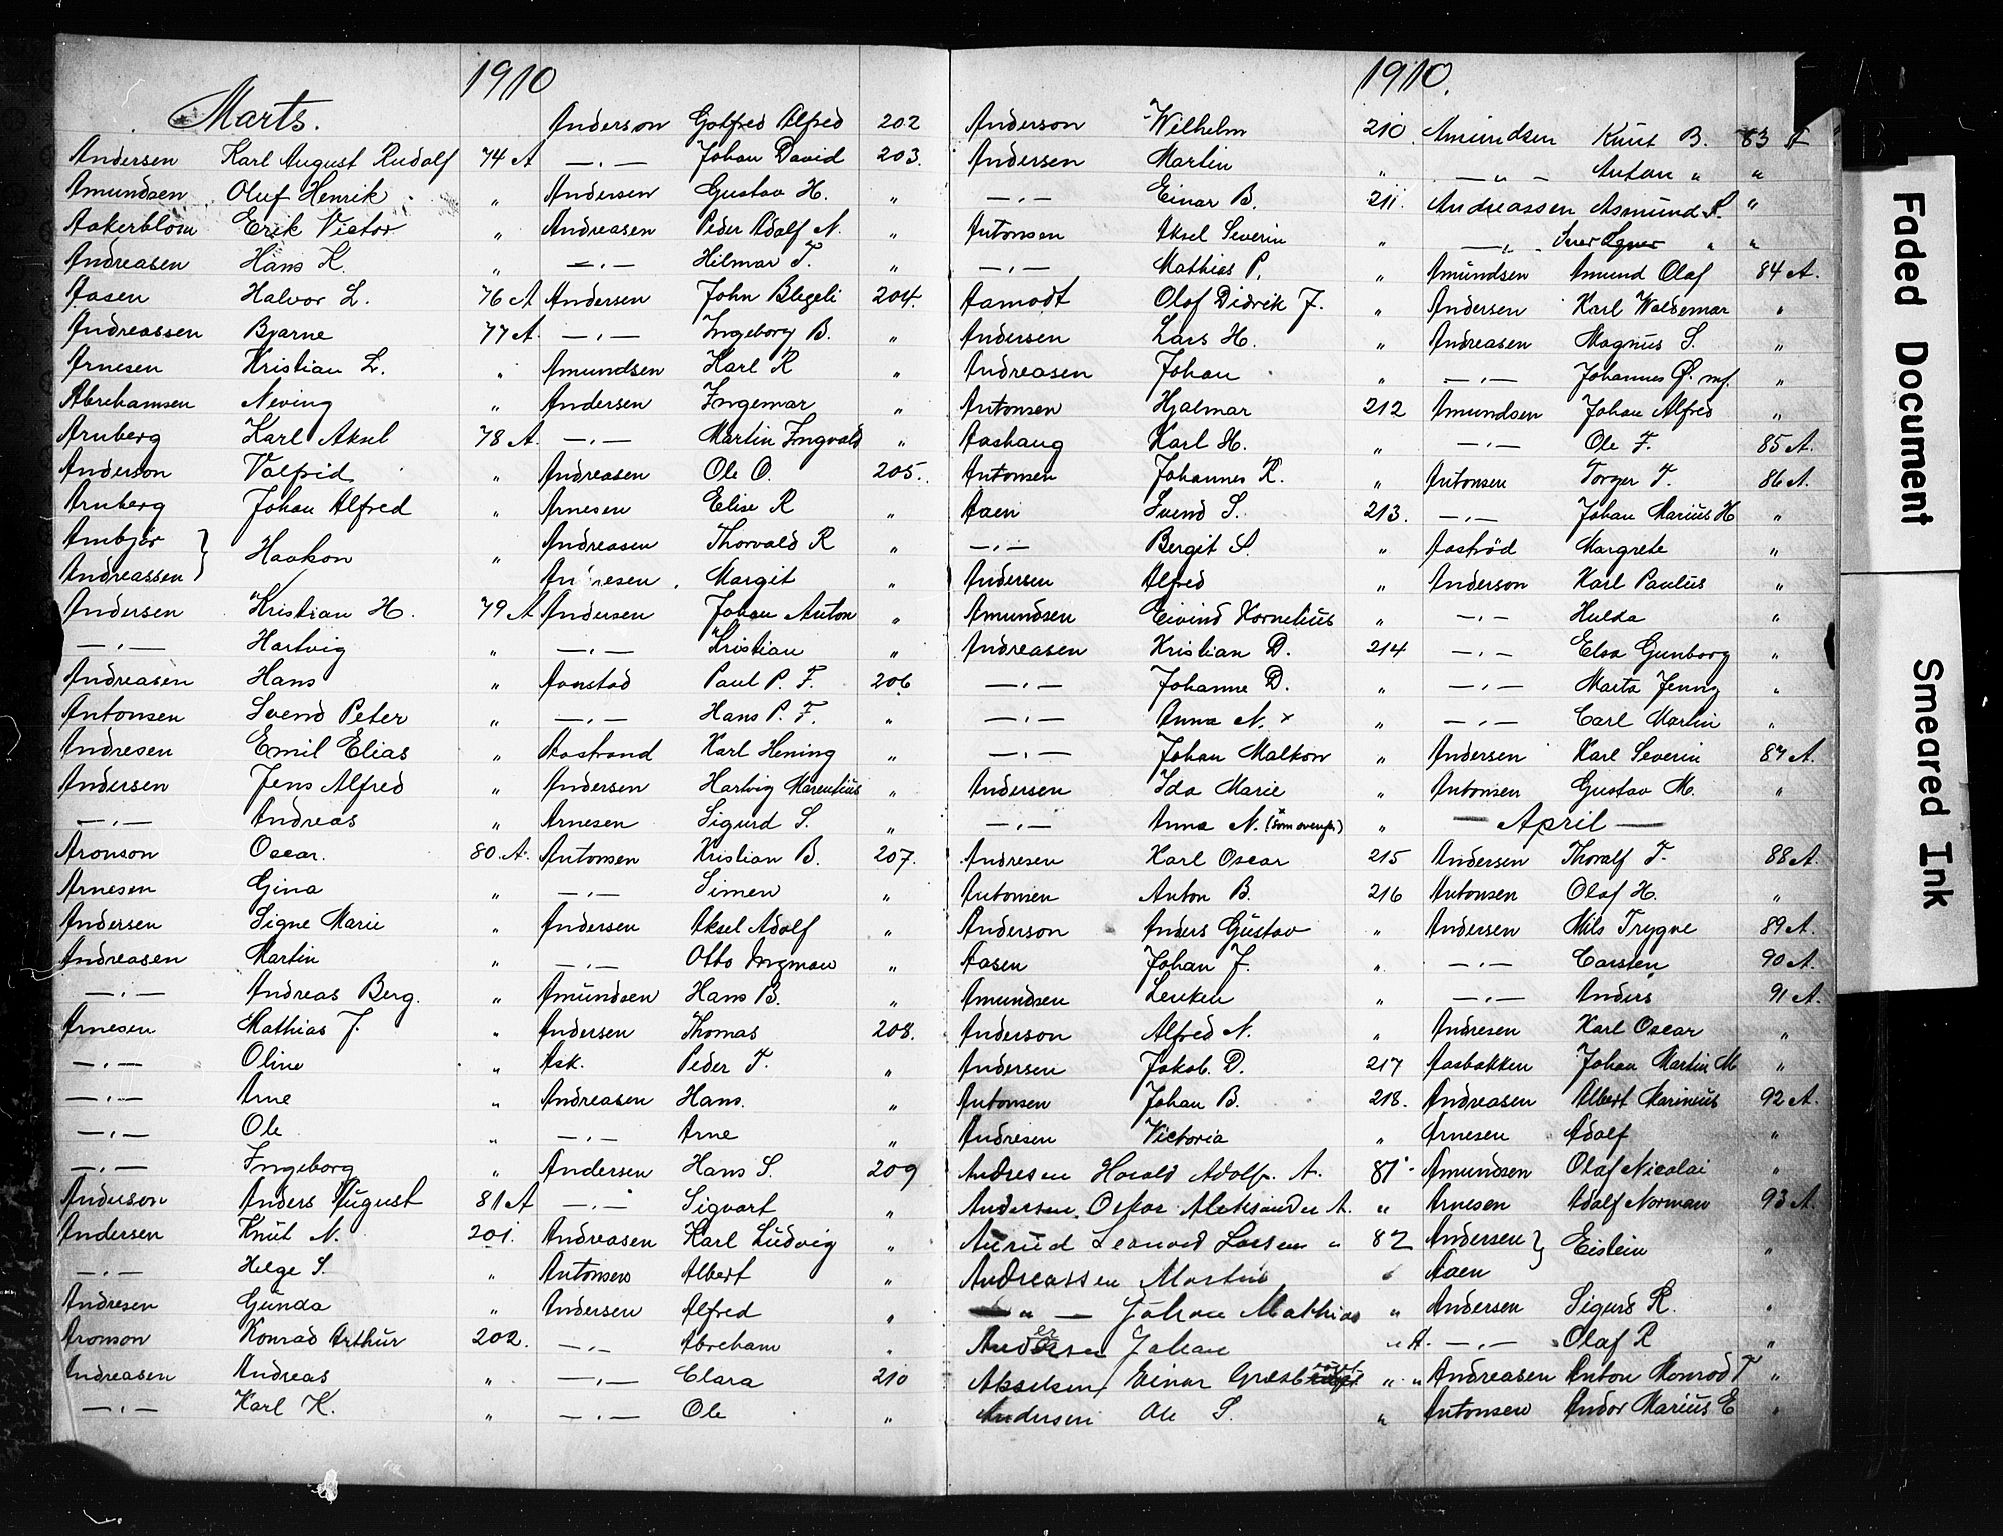 1910
Marts.
Andersen Karl August Rudolf 74 A
Amundsen Oluf Henrik "
Aakerblom Erik Victor "
Andreasen Hans K. "
Aasen Halvor L. 76 A
Andreassen Bjarne 77 A
Arnesen Kristian L. "
Abrehamsen Neving "
Arnberg Karl Aksel 78 A
Anderson Valfrid "
Arnberg Johan Alfred "
Ambjør }
Andreassen } Haakon "
Andersen Kristian H. 79 A
—"— Hartvig "
Andreasen Hans "
Antonsen Svend Peter "
Andresen Emil Elias "
Andersen Jens Alfred "
—"— Andreas "
Aronson Oscar. 80 A.
Arnesen Gina "
Andersen Signe Marie "
Andreasen Martin "
—"— Andreas Berg. "
Arnesen Mathias J. "
—"— Oline "
—"— Arne "
—"— Ole "
—"— Ingeborg "
Anderson Anders August 81 A
Andersen Knut N. 201.
—"— Helge S. "
Andresen Gunda "
Aronson Konrad Arthur 202.
Andreasen Andreas "
—"— Karl K. "
Anderson Gotfred Alfred 202
—"— Johan David 203.
Andersen Gustav H. "
Andreasen Peder Adolf N. "
—"— Hilmar T. "
Andersen John Blegeli 204.
—"— Ingeborg B. "
Amundsen Karl R "
Andersen Ingemar "
—"— Martin Ingvald "
Andreasen Ole O. 205.
Arnesen Elise R "
Andreasen Thorvald R "
Margit "
Andersen Johan Anton "
Kristian "
Aanstad Paul P. F. 206
—"— Hans P. F. "
Aastrand Karl Hening "
Andersen Hartvig Marentius "
Arnesen Sigurd S. "
Antonsen Kristian B. 207.
—"— Simen "
Andersen Aksel Adolf "
—"— Otto Ingman "
Amundsen Hans B. "
Andersen Thomas 208.
Ask. Peder T. "
Andreasen Hans. "
—"— Arne "
Andersen Hans S. 209
—"— Sigvart "
Andreasen Karl Ludvig "
Antonsen Albert "
Andersen Alfred "
—"— Abreham "
—"— Clara 210
—"— Ole "
1910.
Anderson Wilhelm 210.
Andersen Martin "
—"— Einar B. 211.
Antonsen Aksel Severin "
—"— Mathias P. "
Aamodt Olaf Didrik J. "
Andersen Lars H. "
Andreasen Johan "
Antonsen Hjalmar 212
Aashaug Karl H. "
Antonsen Johannes K. "
Aaen Svend S. 213.
—"— Bergit S. "
Andersen Alfred "
Amundsen Eivind Kornelius "
Andreasen Kristian D. 214
—"— Johanne D. "
—"— Anna N. x "
—"— Johan Malkon "
Andersen Ida Marie "
—"— Anna N. (som ovenfor) "
Andresen Karl Oscar 215
Antonsen Anton B. 216
Anderson Anders Gustav "
Aasen Johan J. "
Amundsen "
Anderson Alfred N. "
Andersen Jakob. D. 217
Antonsen Johan B. 218.
Andresen Victoria "
Andresen Harald Adolf. A. 81
Andersen. Oskar Aleksander A. "
Aurud Leonard Larsen " 82
Andreassen Martin
— " — Johan Mathias "
Andersen Johan " A.
Akselsen Einar " "
Andersen Ole S. "
Amundsen Knut B. 83 A
— " — Anton " "
Andreassen Asmund S. "
— " — " "
Amundsen Amund Olaf 84 A.
Andersen Karl Waldemar "
Andreasen Magnus S. "
—"— Johannes Ø. mf. "
Amundsen Johan Alfred "
—"— Ole F. 85 A.
Antonsen Torger T. 86 A.
—"— Johan Marius H "
Aasrød Margrete "
Anderson Karl Paulus "
—"— Hulda "
—"— Elsa Gunborg "
—"— Marta Jenny "
—"— Carl Martin "
Andersen Karl Severin 87 A.
Antonsen Gustav M. "
— April —
Andersen Thoralf T. 88 A.
Antonsen Olaf H. "
Andersen Nils Trygve 89 A.
—"— Carsten 90 A.
—"— Anders 91 A.
Andresen Karl Oscar "
Aasbakken Johan Martin M "
Andreasen Albert Marinius 92 A.
Arnesen Adolf "
Amundsen Olaf Nicolai "
Arnesen Adolf Norman 93 A.
Andersen }
Aaen } Eistein "
Andersen Sigurd R. "
—"— Olaf R "
Andreasen Anton Konrad T "
Antonsen Andor Marius E "
Faded Document
Smeared Ink